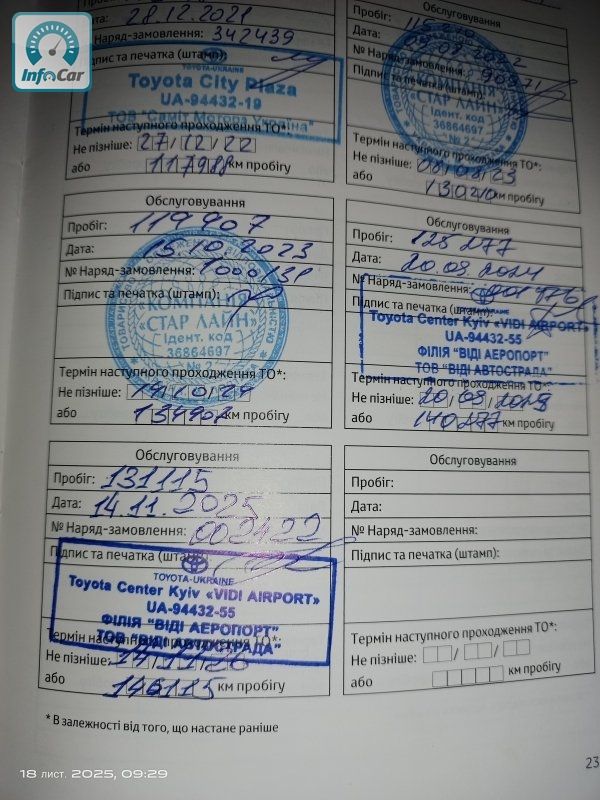 InfoCar
Дата: 28.12.2021
Наряд-замовлення: 342439
Підпис та печатка (штамп):
TOYOTA-UKRAINE
Toyota City Plaza
UA-94432-19
ТОВ "Саміт Моторз Україна"
Термін наступного проходження ТО*:
Не пізніше: 27/12/22
або 117988 км пробігу
Обслуговування
Пробіг:
Дата:
№ Наряд-замовлення:
Підпис та печатка (штамп):
КОМПАНІЯ
"СТАР ЛАЙН"
Ідент. код
36864697
№ 2
Термін наступного проходження ТО*:
Не пізніше: 08/08/23
або 130210 км пробігу
Обслуговування
Пробіг: 119907
Дата: 15.10.2023
№ Наряд-замовлення:
Підпис та печатка (штамп):
КОМПАНІЯ
"СТАР ЛАЙН"
Ідент. код
36864697
№ 2
Термін наступного проходження ТО*:
Не пізніше: 14/10/24
або 134907 км пробігу
Обслуговування
Пробіг: 125277
Дата: 20.08.2024
№ Наряд-замовлення:
Підпис та печатка (штамп):
Toyota Center Kyiv «VIDI AIRPORT»
UA-94432-55
ФІЛІЯ "ВІДІ АЕРОПОРТ"
ТОВ "ВІДІ АВТОСТРАДА"
Термін наступного проходження ТО*:
Не пізніше: 20/08/2025
або 140277 км пробігу
Обслуговування
Пробіг: 131115
Дата: 14.11.2025
№ Наряд-замовлення: 002422
Підпис та печатка (штамп):
TOYOTA-UKRAINE
Toyota Center Kyiv «VIDI AIRPORT»
UA-94432-55
ФІЛІЯ "ВІДІ АЕРОПОРТ"
ТОВ "ВІДІ АВТОСТРАДА"
Термін наступного проходження ТО*:
Не пізніше: 14/11/26
або 146115 км пробігу
Обслуговування
Пробіг:
Дата:
№ Наряд-замовлення:
Підпис та печатка (штамп):
Термін наступного проходження ТО*:
Не пізніше: / /
або км пробігу
* В залежності від того, що настане раніше
23
18 лист. 2025, 09:29